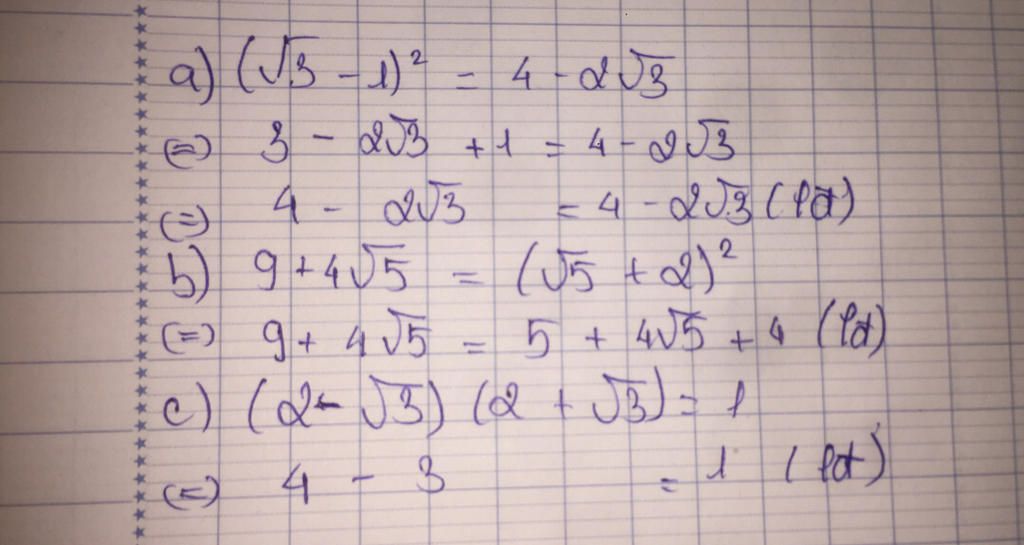 a) (√3 - 1)² = 4 - 2√3
(=) 3 - 2√3 + 1 = 4 - 2√3
(=) 4 - 2√3 = 4 - 2√3 (lđ)
b) 9 + 4√5 = (√5 + 2)²
(=) 9 + 4√5 = 5 + 4√5 + 4 (lđ)
c) (2 - √3) (2 + √3) = 1
(=) 4 - 3 = 1 (lđ)